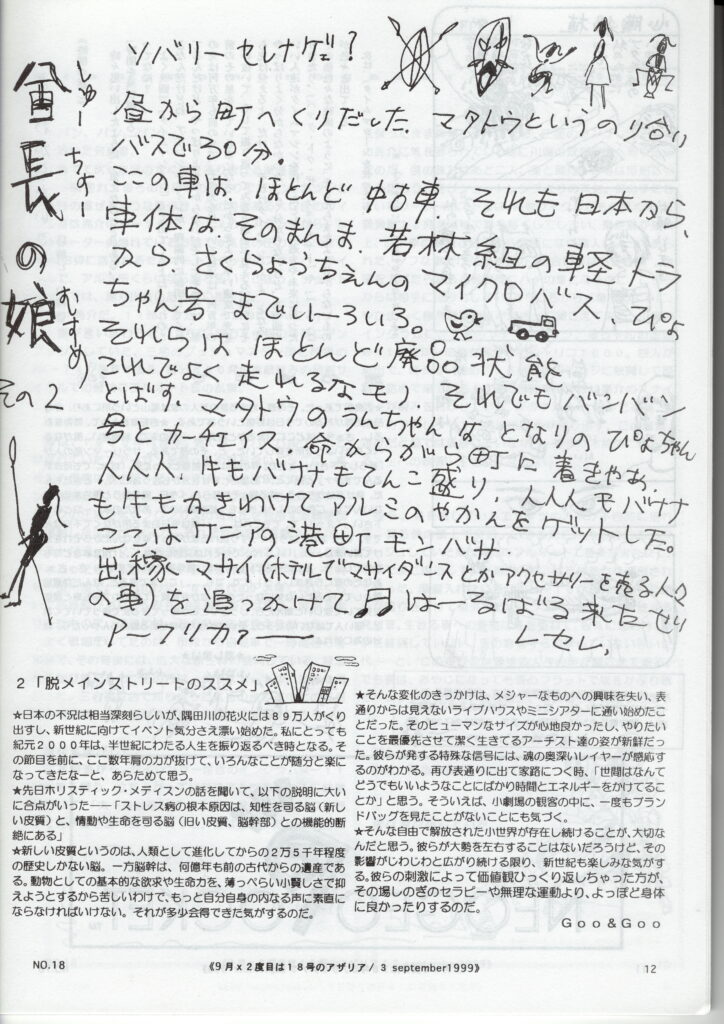 酋長の娘
しゅーちすー
むすめ
その2
ソバリーセレナゲェ?
昼から町へくりだした。マタトウというのり合い
バスで30分。
ここの車は、ほとんど中古車、それも日本から、
車体は、そのまんま、若林組の軽トラ
から、さくらようちえんのマイクロバス、ぴよ
ちゃん号までいーろいろ。
それらはほとんど廃品状態
これでよく走れるなモノ、それでもバンバン
とばす。マタトウのうんちゃんはとなりのぴよちゃん
号とカーチェイス、命からがら町に着きやあ、
人人人、牛もバナナもてんこ盛り、人人人モバナナ
も牛もかきわけてアルミのやかんをゲットした。
ここはケニアの港町モンバサ、
出稼マサイ(ホテルでマサイダンスとかアクセサリーを売る人々
の事)を追っかけて♫はーるばる来たぜい
アーフリカァー
レセレ、
2「脱メインストリートのススメ」
★日本の不況は相当深刻らしいが、隅田川の花火には89万人がくり
出すし、新世紀に向けてイベント気分さえ漂い始めた。私にとっても
紀元2000年は、半世紀にわたる人生を振り返るべき時となる。そ
の節目を前に、ここ数年肩の力が抜けて、いろんなことが随分と楽に
なってきたなーと、あらためて思う。
★先日ホリスティック・メディスンの話を聞いて、以下の説明に大い
に合点がいった――「ストレス病の根本原因は、知性を司る脳(新し
い皮質)と、情動や生命を司る脳(旧い皮質、脳幹部)との機能的断
絶にある」
★新しい皮質というのは、人類として進化してからの2万5千年程度
の歴史しかない脳。一方脳幹は、何億年も前の古代からの遺産であ
る。動物としての基本的な欲求や生命力を、薄っぺらい小賢しさで抑
えようとするから苦しいわけで、もっと自分自身の内なる声に素直に
ならなければいけない。それが多少会得できた気がするのだ。
★そんな変化のきっかけは、メジャーなものへの興味を失い、表
通りからは見えないライブハウスやミニシアターに通い始めたこ
とだった。そのヒューマンなサイズが心地良かったし、やりたい
ことを最優先させて潔く生きてるアーチスト達の姿が新鮮だっ
た。彼らが発する特殊な信号には、魂の奥深いレイヤーが感応す
るのがわかる。再び表通りに出て家路につく時、「世間はなんて
どうでもいいようなことにばかり時間とエネルギーをかけてるこ
とか」と思う。そういえば、小劇場の観客の中に、一度もブラン
ドバッグを見たことがないことにも気づく。
★そんな自由で解放された小世界が存在し続けることが、大切な
んだと思う。彼らが大勢を左右することはないだろうけど、その
影響がじわじわと広がり続ける限り、新世紀も楽しみな気がす
る。彼らの刺激によって価値観ひっくり返しちゃった方が、
その場しのぎのセラピーや無理な運動より、よっぽど身体
に良かったりするのだ。
Goo&Goo
NO.18
《9月x2度目は18号のアザリア/ 3 september1999》
12